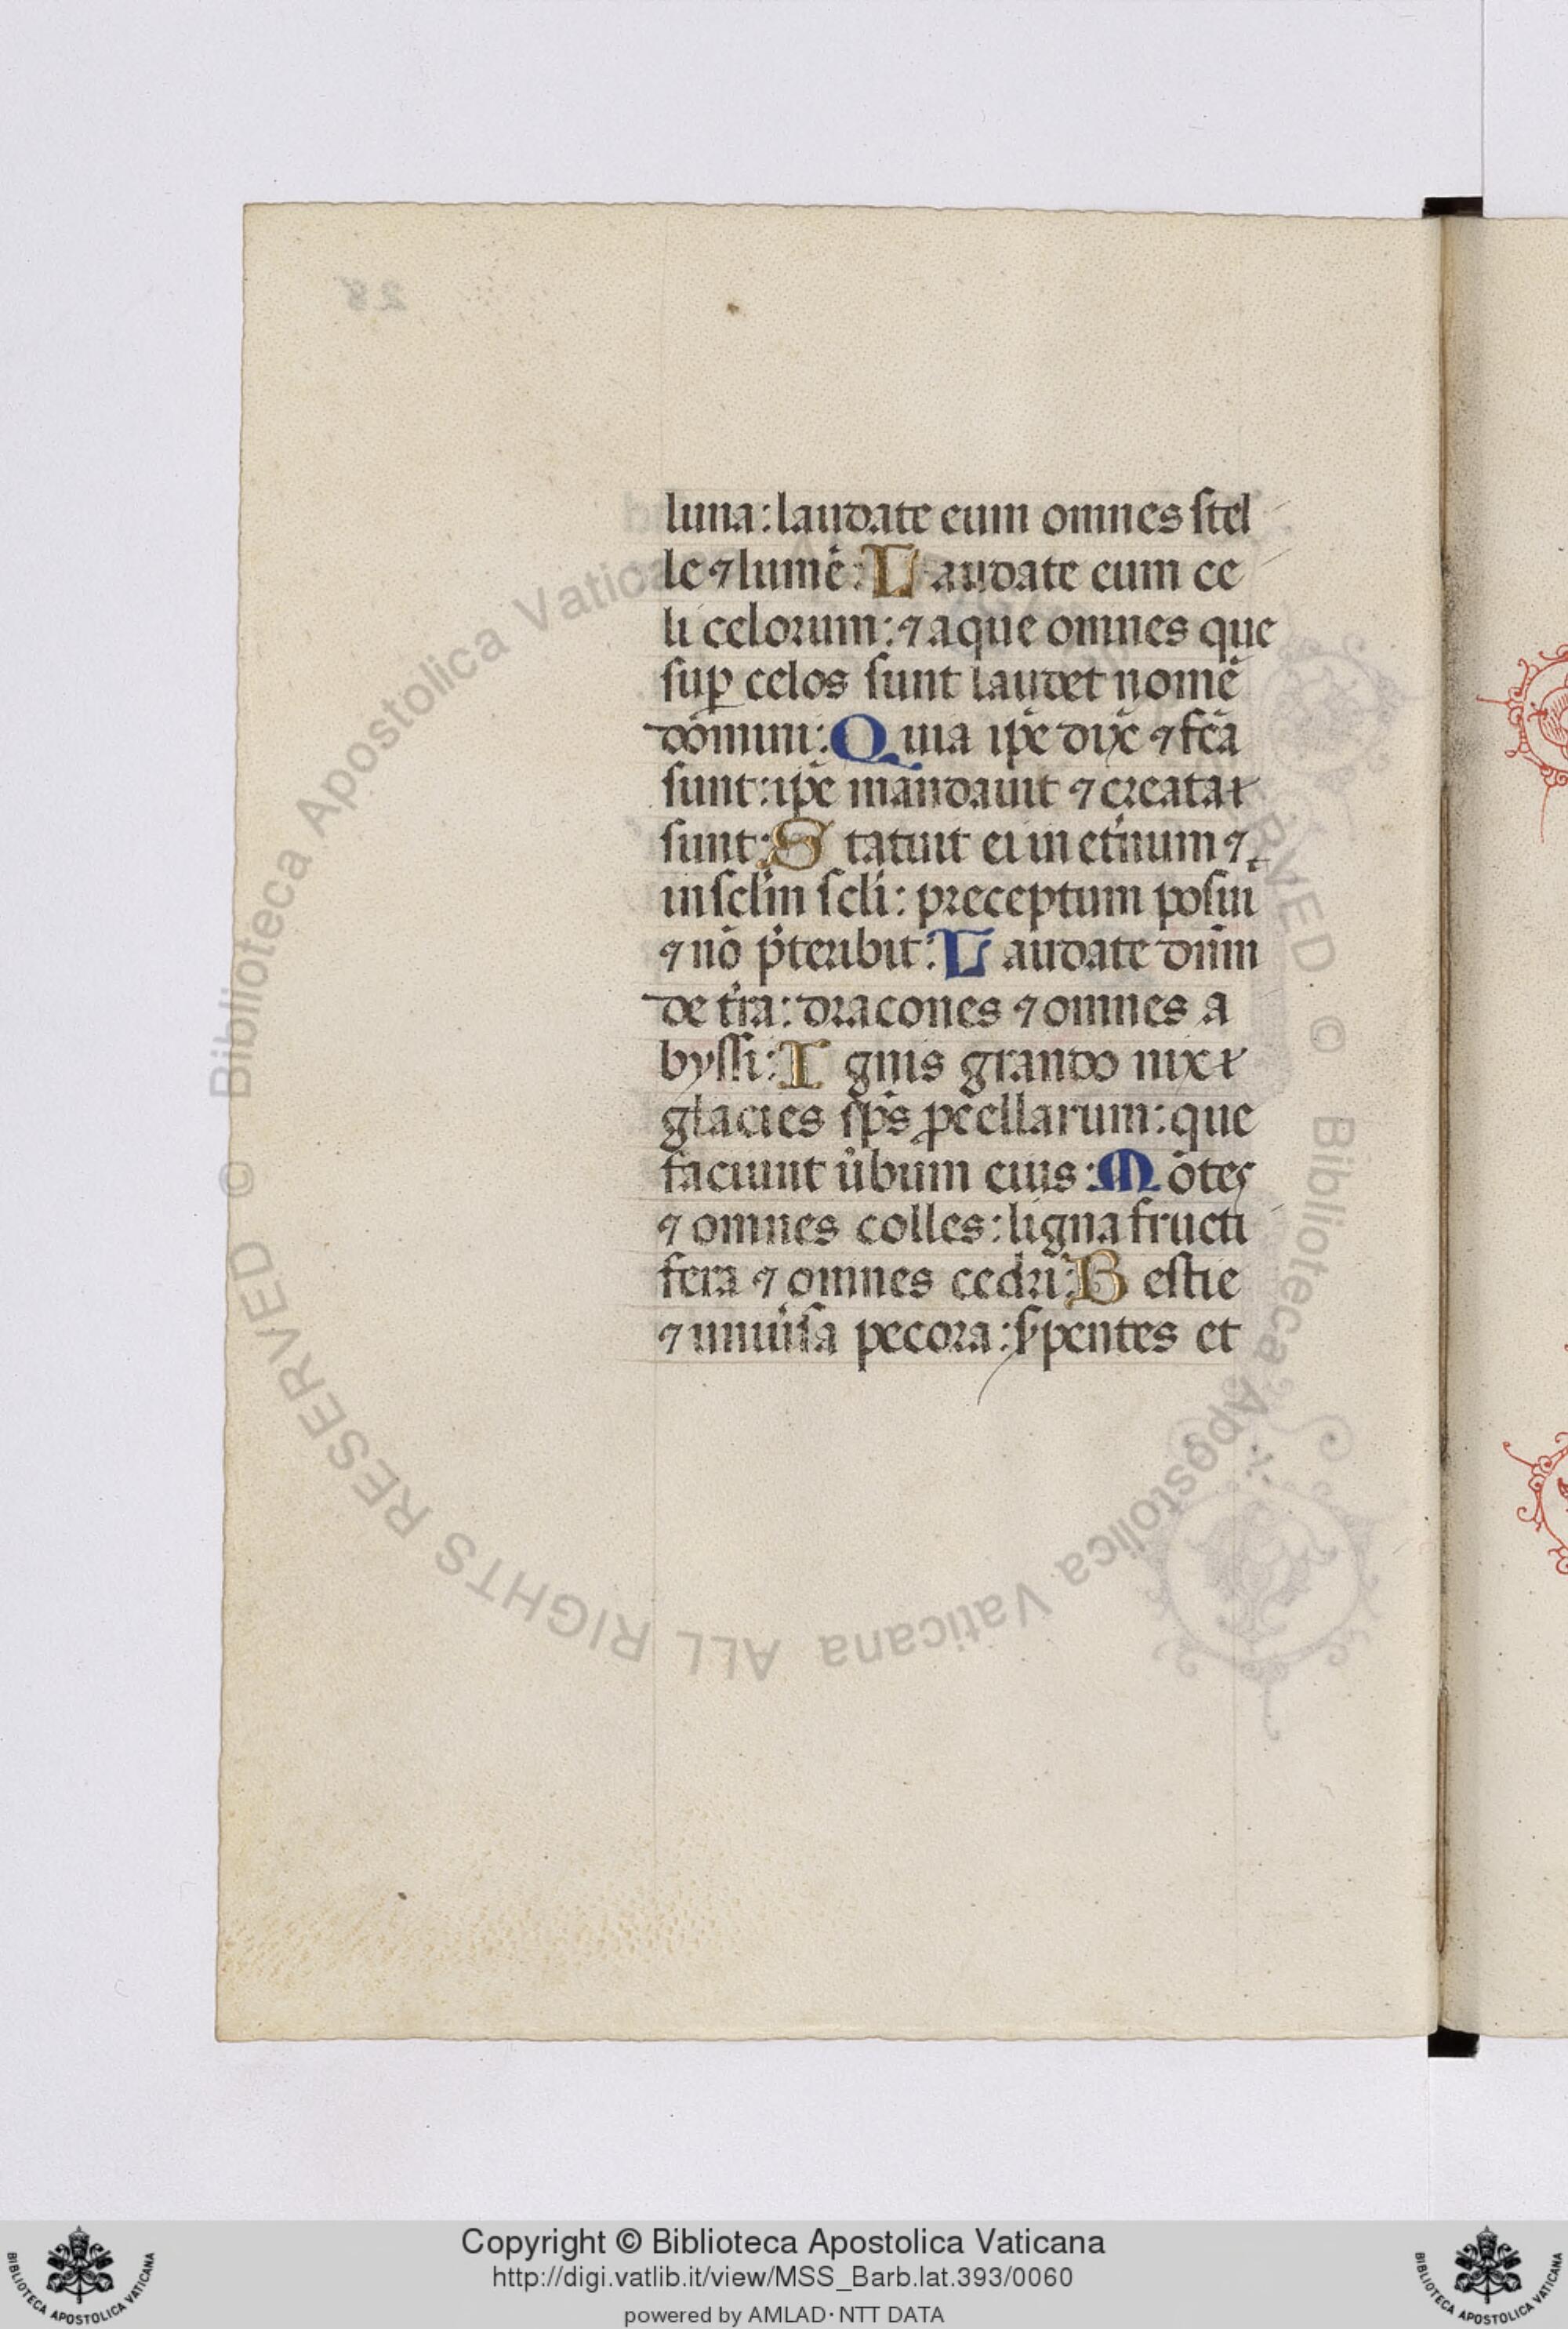 luna: laudate eum omnes stel
le ⁊ lumē: Laudate eum ce
li celorum: ⁊ aque omnes que
suꝑ celos sunt laudet nomē
domini: Quia ip̄e dix̄ ⁊ fc̄a
sunt: ip̄e mandauit ⁊ creata ⁊
sunt: Statuit ei in et̓num ⁊
in sclm̄ scl̄i: preceptum posui
⁊ nō p̄teribit: Laudate dūm
de t̓ra: dracones ⁊ omnes a
byssi: Ignis grando nix ⁊
glacies sp̄s ꝓcellarum: que
faciunt u̓bum eius: Mōtes
⁊ omnes colles: ligna fructi
fera ⁊ omnes cedri: Bestie
⁊ uniu̓sa pecora: s̓pentes et
28
© Biblioteca Apostolica Vaticana ALL RIGHTS RESERVED © Biblioteca Apostolica Vaticana ALL RIGHTS RESERVED
Copyright © Biblioteca Apostolica Vaticana
http://digi.vatlib.it/view/MSS_Barb.lat.393/0060
powered by AMLAD·NTT DATA
BIBLIOTECA APOSTOLICA VATICANA
BIBLIOTECA APOSTOLICA VATICANA